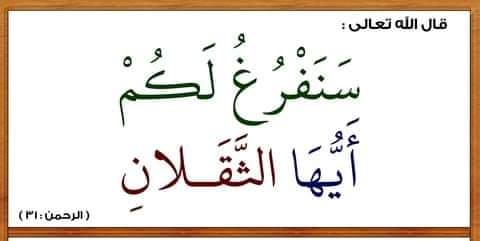 قال الله تعالى :
سَنَفْرُغُ لَكُمْ
أَيُّهَا الثَّقَلَانِ
( الرحمن : ٣١ )